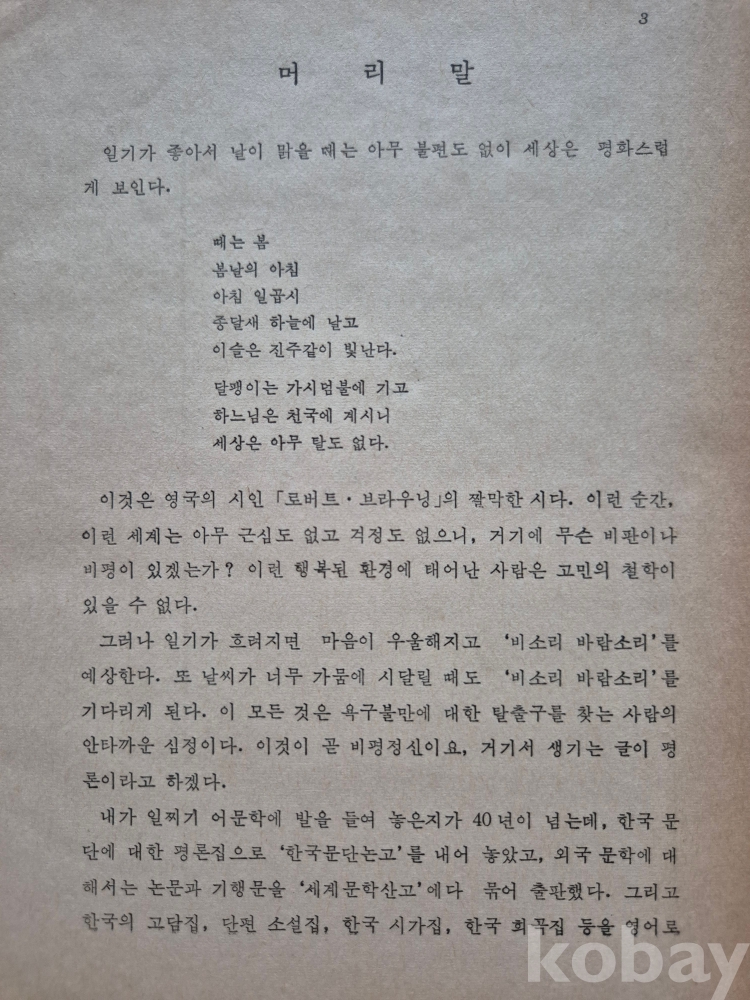 3
머 리 말
일기가 좋아서 날이 맑을 때는 아무 불편도 없이 세상은 평화스럽
게 보인다.
때는 봄
봄날의 아침
아침 일곱시
종달새 하늘에 날고
이슬은 진주같이 빛난다.
달팽이는 가시덤불에 기고
하느님은 천국에 계시니
세상은 아무 탈도 없다.
이것은 영국의 시인 「로버트·브라우닝」의 짤막한 시다. 이런 순간,
이런 세계는 아무 근심도 없고 걱정도 없으니, 거기에 무슨 비판이나
비평이 있겠는가? 이런 행복된 환경에 태어난 사람은 고민의 철학이
있을 수 없다.
그러나 일기가 흐려지면 마음이 우울해지고 ‘비소리 바람소리’를
예상한다. 또 날씨가 너무 가뭄에 시달릴 때도 ‘비소리 바람소리’를
기다리게 된다. 이 모든 것은 욕구불만에 대한 탈출구를 찾는 사람의
안타까운 심정이다. 이것이 곧 비평정신이요, 거기서 생기는 글이 평
론이라고 하겠다.
내가 일찌기 어문학에 발을 들여 놓은지가 40년이 넘는데, 한국 문
단에 대한 평론집으로 ‘한국문단논고’를 내어 놓았고, 외국 문학에 대
해서는 논문과 기행문을 ‘세계문학산고’에다 묶어 출판했다. 그리고
한국의 고담집, 단편 소설집, 한국 시가집, 한국 희곡집 등을 영어로
kobay